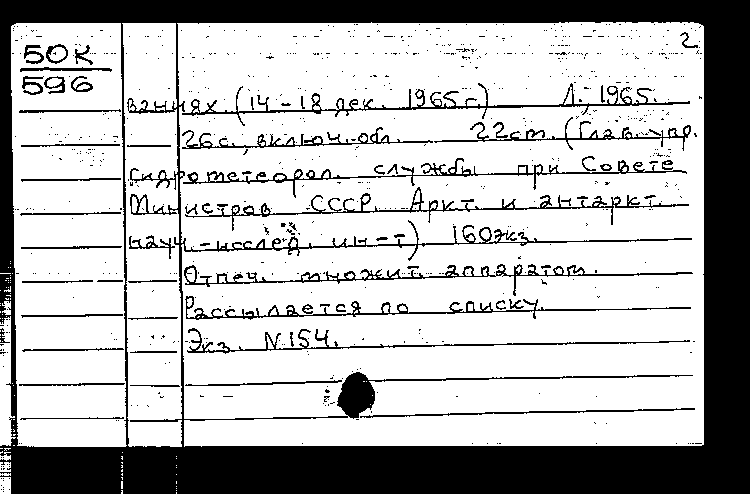 2
50К
596
ваниях. (14-18 дек. 1965 г.) Л., 1965.
26 с., включ. обл. 22 см. (Глав. упр.
гидрометеорол. службы при Совете
Министров СССР. Аркт. и антаркт.
науч.-исслед. ин-т). 160 экз.
Отпеч. множит. аппаратом.
Рассылается по списку.
Экз. N 154.